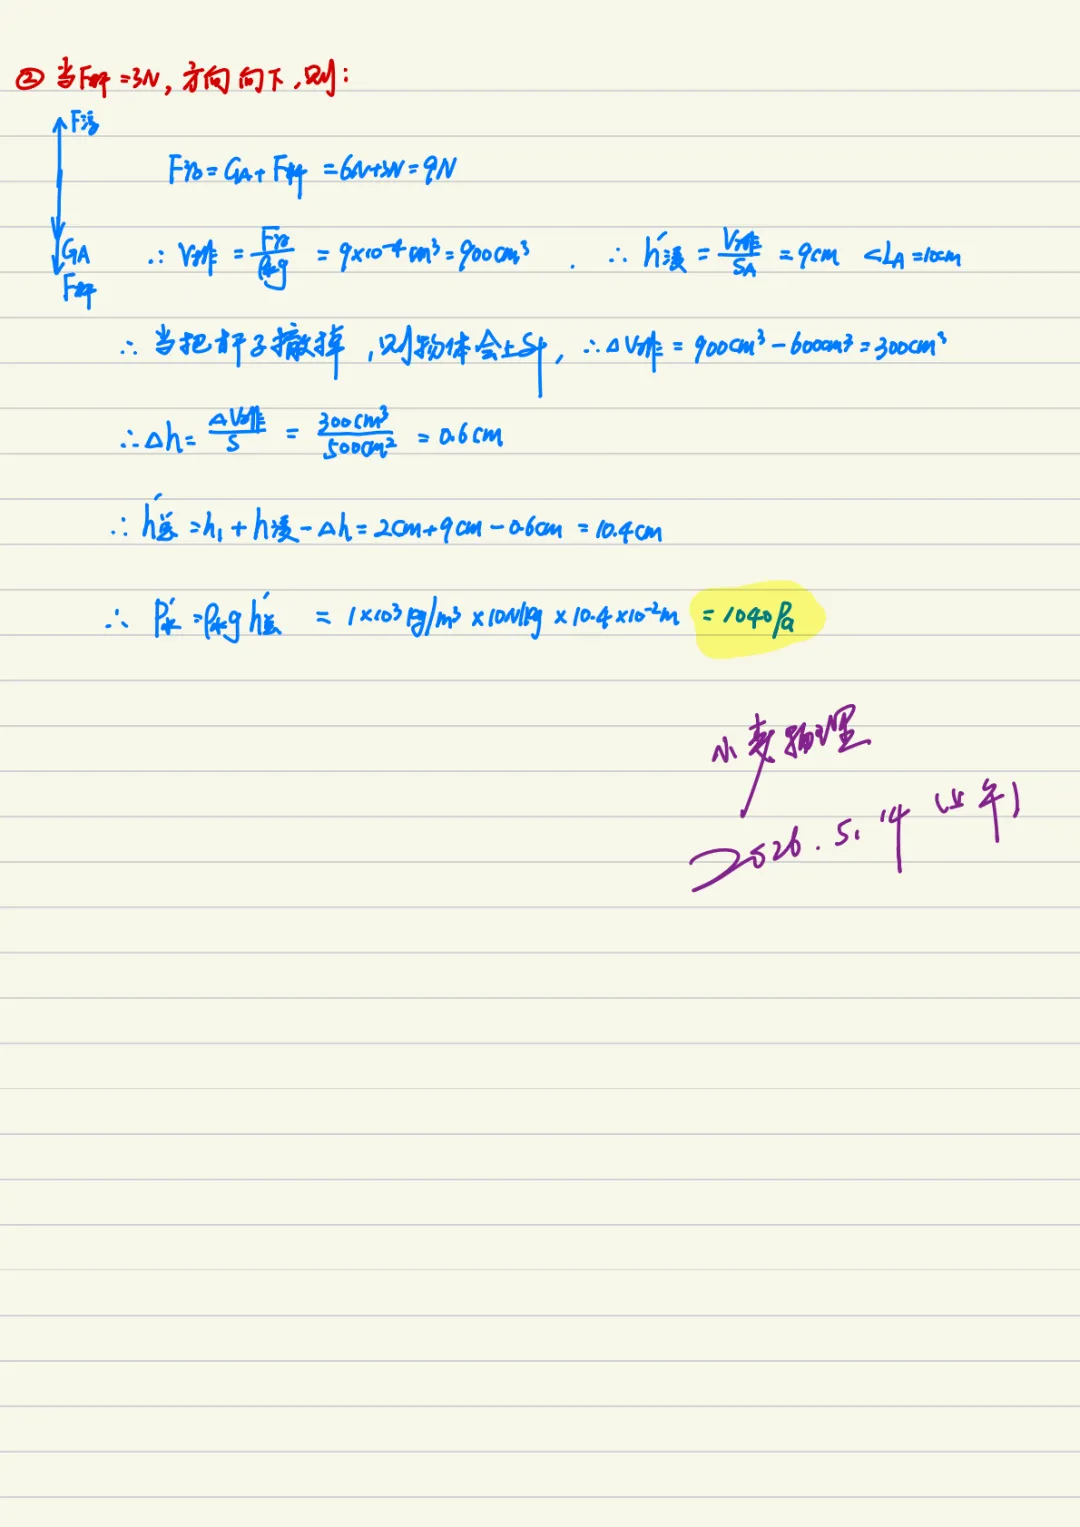 ② 当F杆=3N,方向向下,则:
F浮
F浮=GA+F杆=6N+3N=9N
GA
F杆
∴ V排=F浮/ρ水g=9×10⁻⁴m³=900cm³. ∴ h浸'=V排/SA=9cm <LA=10cm
∴ 当把杆子撤掉,则物体会上升,∴ΔV排=900cm³-600cm³=300cm³
∴Δh=ΔV排/S=300cm³/500cm²=0.6cm
∴ h总'=h₁+h浸-Δh=2cm+9cm-0.6cm=10.4cm
∴ P水'=ρ水gh总'=1×10³kg/m³×10N/kg×10.4×10⁻²m=1040Pa
物理
2026.5.14(上午)